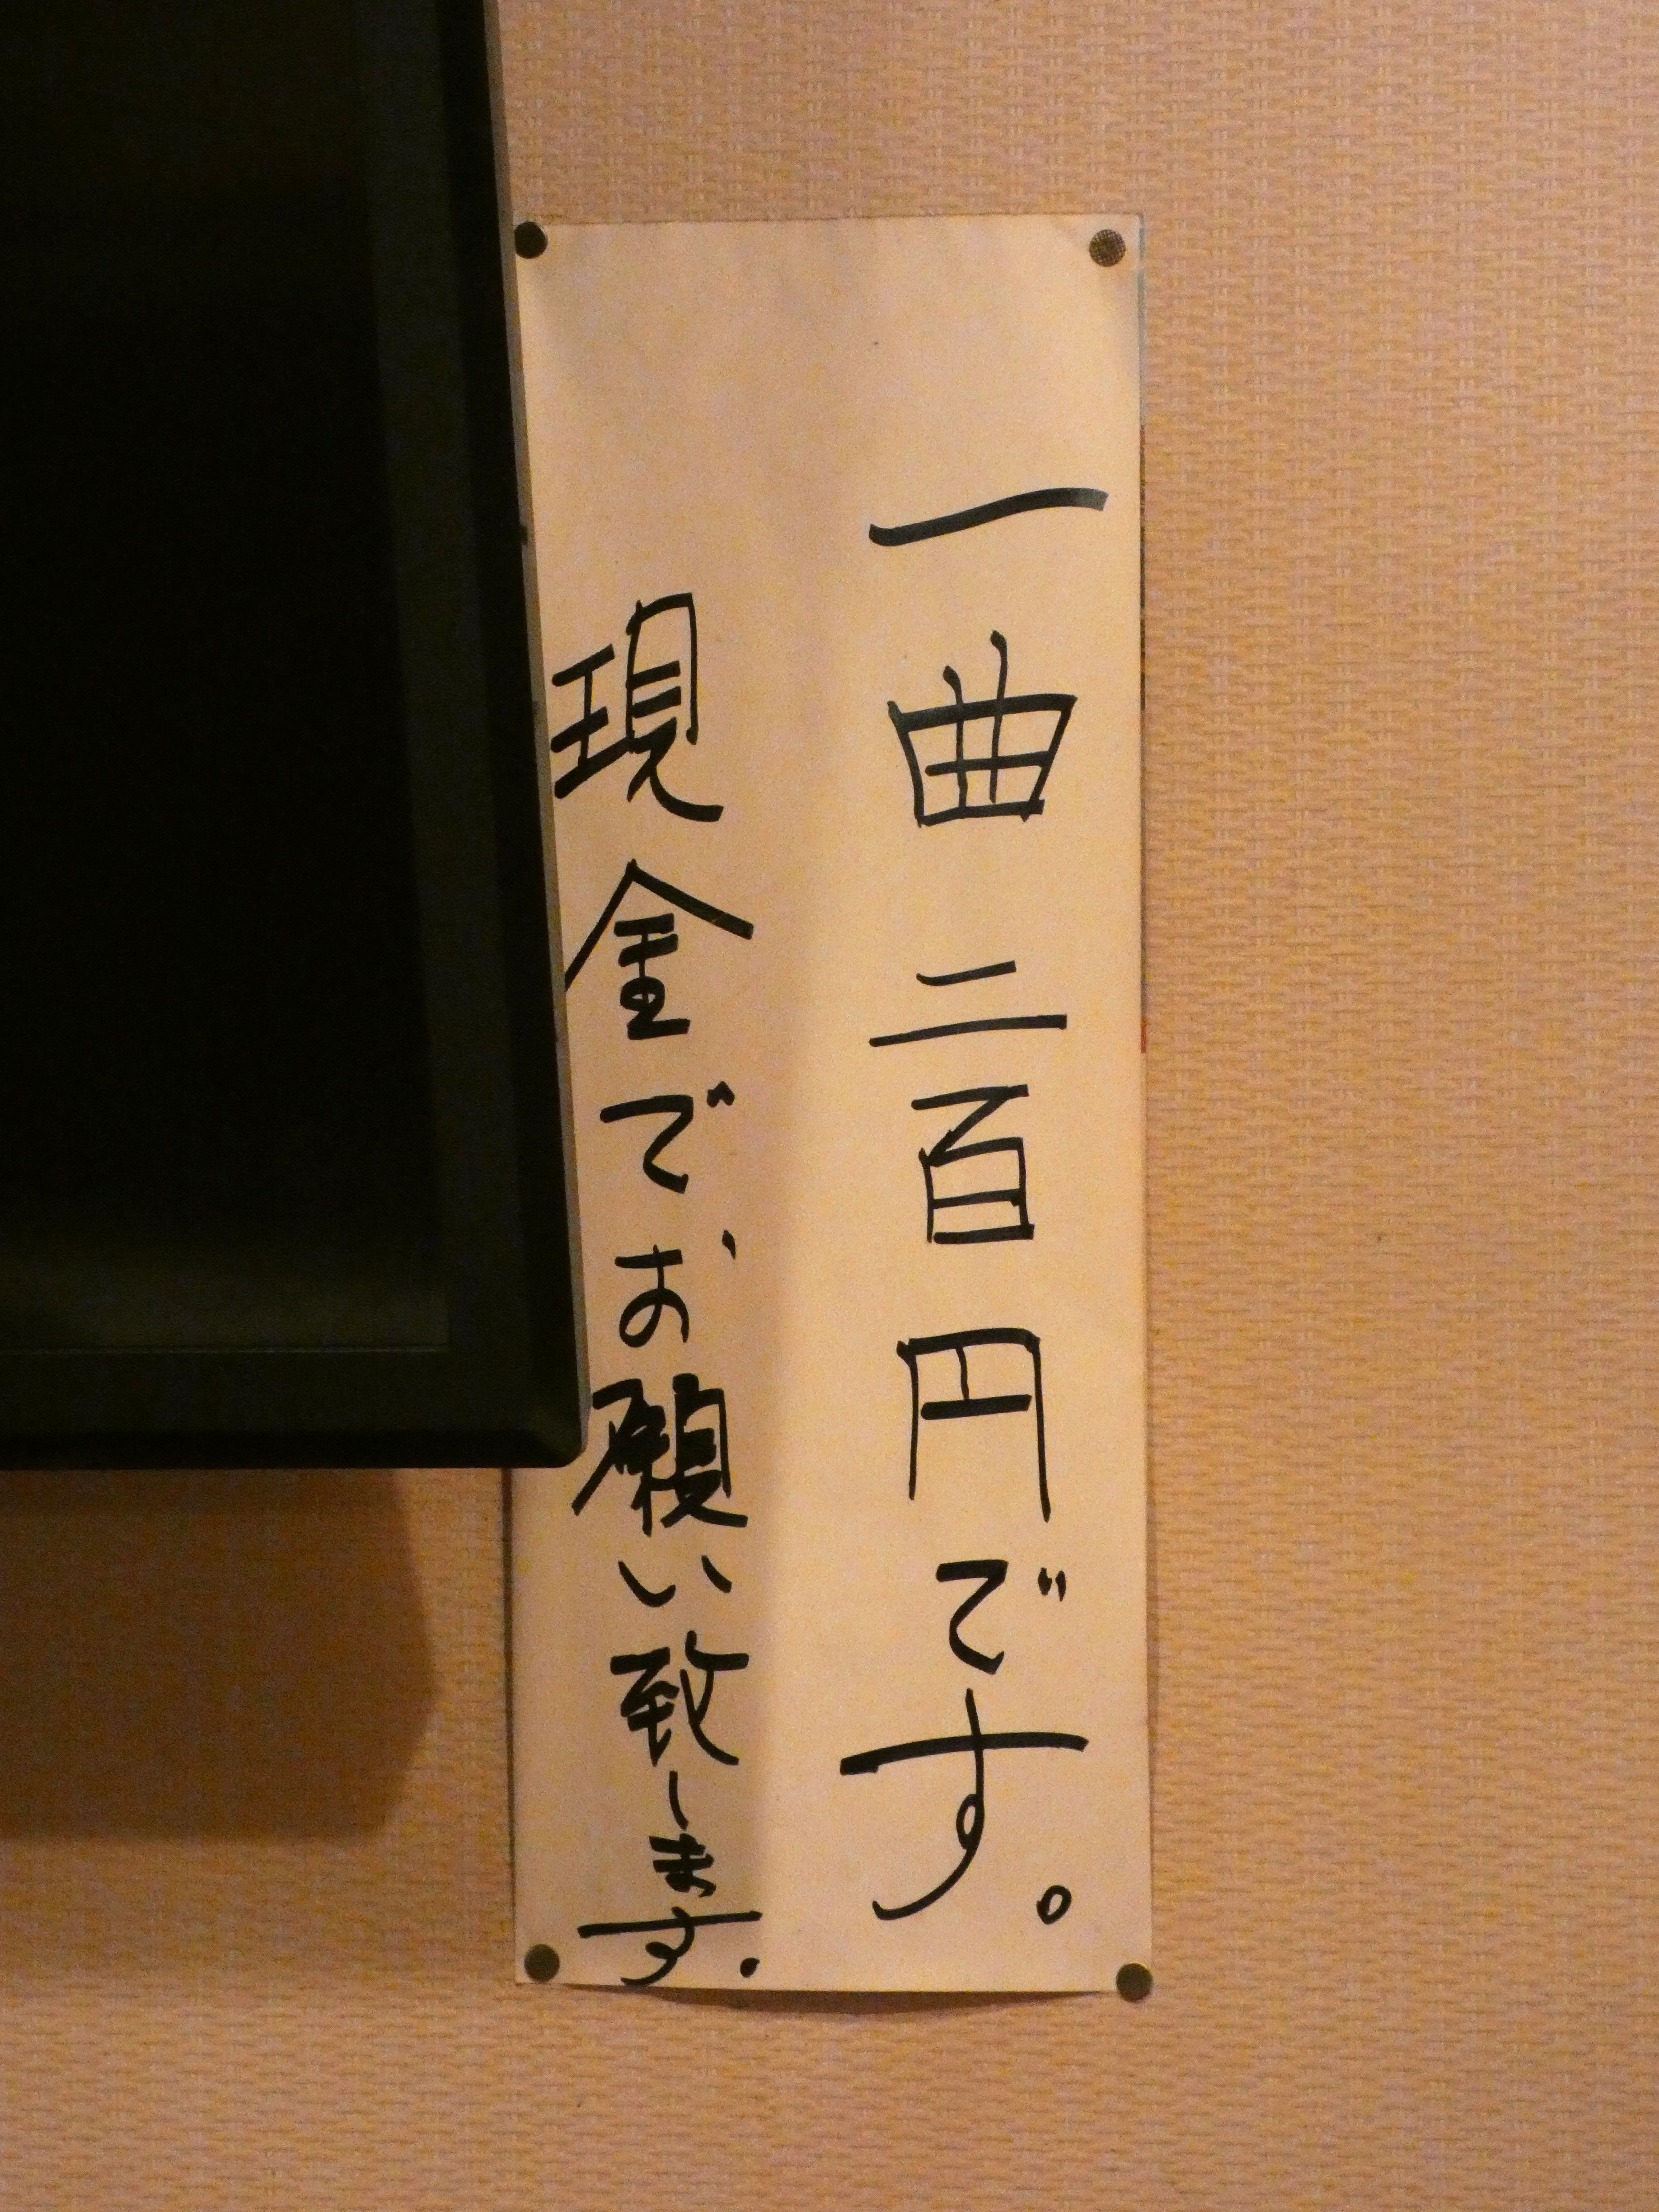 一曲二百円です。
現金でお願い致します.